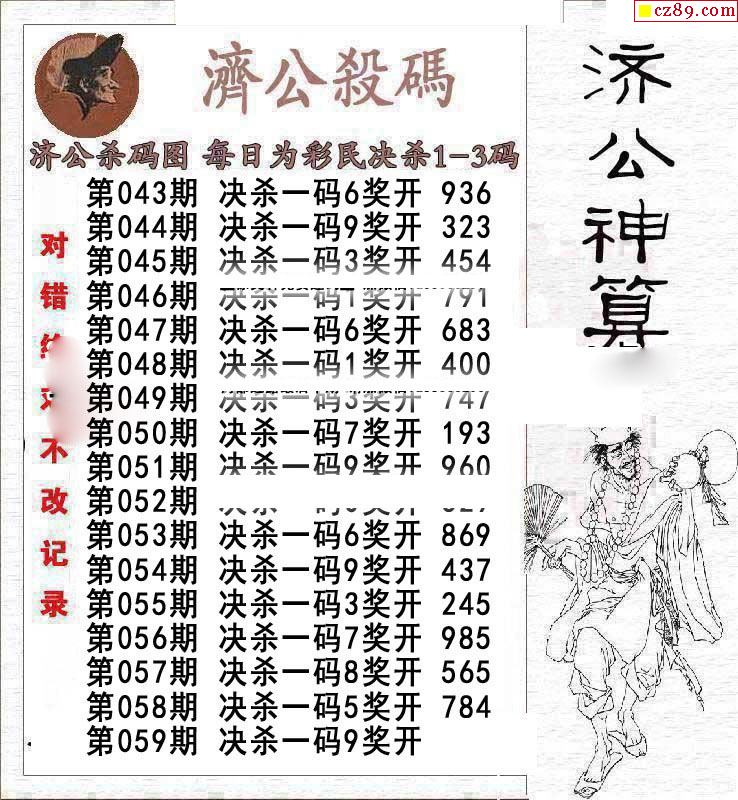 cz89.com
濟公殺碼
济公杀码图 每日为彩民决杀1-3码
第043期 决杀一码6奖开 936
第044期 决杀一码9奖开 323
第045期 决杀一码3奖开 454
第046期 决杀一码1奖开 791
第047期 决杀一码6奖开 683
第048期 决杀一码1奖开 400
第049期 决杀一码3奖开 747
第050期 决杀一码7奖开 193
第051期 决杀一码9奖开 960
第052期
第053期 决杀一码6奖开 869
第054期 决杀一码9奖开 437
第055期 决杀一码3奖开 245
第056期 决杀一码7奖开 985
第057期 决杀一码8奖开 565
第058期 决杀一码5奖开 784
第059期 决杀一码9奖开
对错
不改记录
济公神算